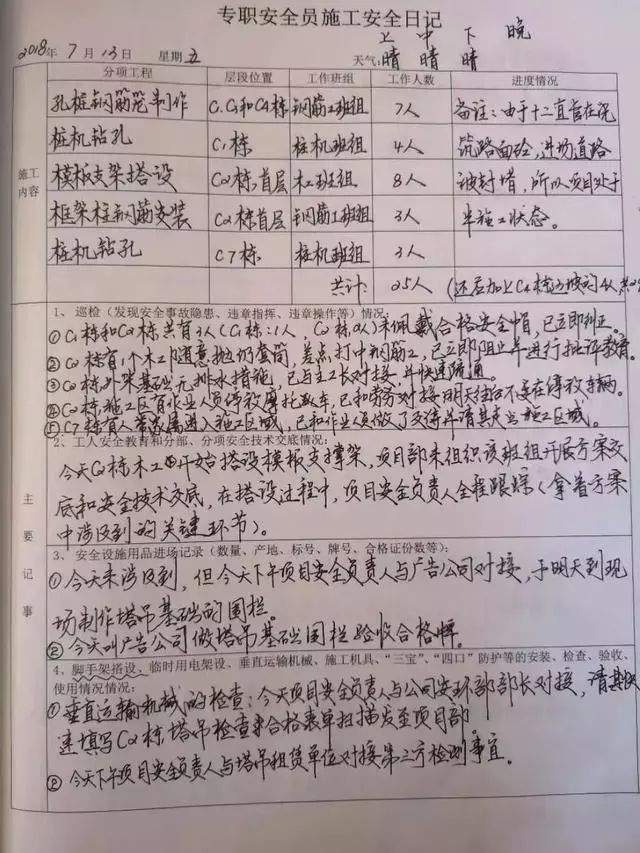 专职安全员施工安全日记
上 中 下 晚
2018年 7 月 13 日 星期五 天气: 晴 晴 晴
分项工程 层段位置 工作班组 工作人数 进度情况
施工内容
孔桩钢筋笼制作 钢筋工班组 7人 备注:由于十二直管在浇
桩机钻孔 C1栋 桩机班组 4人 筑路面砼,进场道路
模板支架搭设 C2栋首层 木工班组 8人 被封堵,所以项目处于
框架柱钢筋安装 C2栋首层 钢筋工班组 3人 半施工状态。
桩机钻孔 C7栋 桩机班组 3人
共计: 25人
主要记事
1、巡检(发现安全事故隐患、违章指挥、违章操作等)情况:
① C1栋和C2栋共有3人(C1栋:1人,C2栋:2人)未佩戴合格安全帽,已立即纠正。
② C2栋有1个木工随意抛扔套筒,差点打中钢筋工,已立即阻止并进行批评教育。
③ C2栋外架基础无排水措施,已与主工长对接,并快速疏通。
④ C2栋施工区有作业人员停放摩托车,已和劳务对接明天往后不要在停放车辆。
⑤ C7栋有人带家属进入施工区域,已和作业人员做了交待并请其走出施工区域。
2、工人安全教育和分部、分项安全技术交底情况:
今天C2栋木工开始搭设模板支撑架,项目部未组织该班组开展方案交
底和安全技术交底,在搭设过程中,项目安全负责人全程跟踪(拿着方案
中涉及到的关键环节)。
3、安全设施用品进场记录(数量、产地、标号、牌号、合格证份数等):
① 今天未涉及到,但今天下午项目安全负责人与广告公司对接,于明天到现
场制作塔吊基础的围栏。
② 今天叫广告公司做塔吊基础围栏验收合格牌。
4、脚手架搭设、临时用电架设、垂直运输机械、施工机具、“三宝”、“四口”防护等的安装、检查、验收、
使用情况情况:
① 垂直运输机械的检查:今天项目安全负责人与公司安环部部长对接,请其快
速填写C2栋塔吊检查合格表单扫描发至项目部。
② 今天下午项目安全负责人与塔吊租赁单位对接第三方检测事宜。